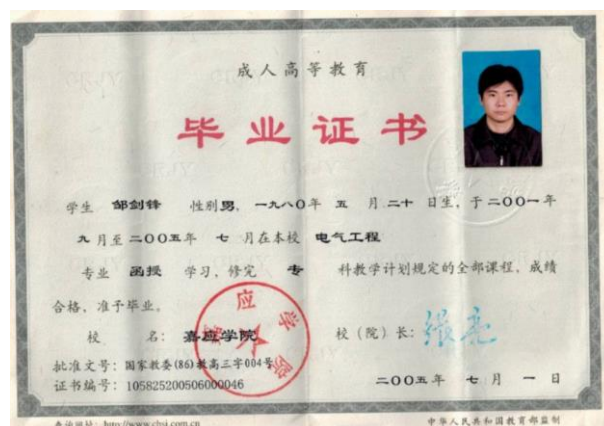 成人高等教育
毕业证书
学生 邹剑锋 性别 男, 一九八〇年 五 月 二十 日生, 于二〇〇一年
九 月至 二〇〇五年 七 月在本校 电气工程
专业 函授 学习, 修完 专 科教学计划规定的全部课程, 成绩
合格, 准予毕业。
校 名: 嘉应学院 校(院)长: 张亮
批准文号: 国家教委(86)教高三字004号
证书编号: 105825200506000046
二〇〇五年 七 月 一 日
查询网址: http://www.chsi.com.cn 中华人民共和国教育部监制